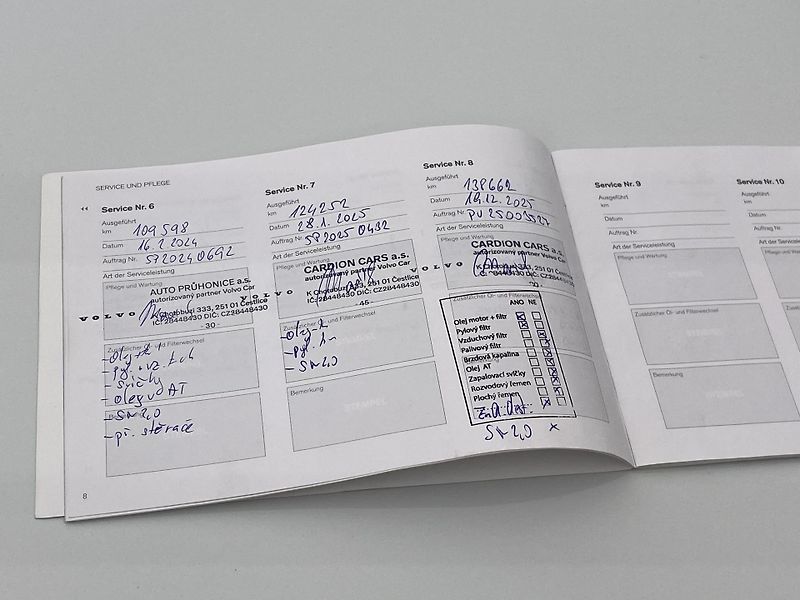 SERVICE UND PFLEGE
Service Nr. 6
Ausgeführt
km 109 598
Datum 16.2.2024
Auftrag Nr. SP2024 0692
Art der Serviceleistung
Pflege und Wartung
AUTO PRŮHONICE a.s.
autorizovaný partner Volvo Car
VOLVO
K Chotobuzi 333, 251 01 Čestlice
IČ: 28448430 DIČ: CZ28448430
- 30 -
Zusätzlicher Öl- und Filterwechsel
- Svíčky
- Olej v AT
- SM 2,0
- př. stěrače
Service Nr. 7
Ausgeführt
km 124252
Datum 28.1.2025
Auftrag Nr. SP2025 0432
Art der Serviceleistung
Pflege und Wartung
CARDION CARS a.s.
autorizovaný partner Volvo Car
VOLVO
K Chotobuzi 333, 251 01 Čestlice
IČ: 28448430 DIČ: CZ28448430
- 45 -
Zusätzlicher Öl- und Filterwechsel
- SM 2,0
Bemerkung
STEMPEL
Service Nr. 8
Ausgeführt
km 138662
Datum 19.12.2025
Auftrag Nr. PV 25003527
Art der Serviceleistung
Pflege und Wartung
CARDION CARS a.s.
autorizovaný partner Volvo Car
VOLVO
K Chotobuzi 333, 251 01 Čestlice
IČ: 28448430 DIČ: CZ28448430
Zusätzlicher Öl- und Filterwechsel
ANO NE
Olej motor + filtr
Pylový filtr
Vzduchový filtr
Palivový filtr
Brzdová kapalina
Olej AT
Zapalovací svíčky
Rozvodový řemen
Plochý řemen
SM 2,0 x
8
Service Nr. 9
Ausgeführt
km
Datum
Auftrag Nr.
Art der Serviceleistung
Pflege und Wartung
Zusätzlicher Öl- und Filterwechsel
Bemerkung
STEMPEL
Service Nr. 10
Ausgeführt
km
Datum
Auftrag Nr.
Art der Serviceleistung
Pflege und Wartung
Zusätzlicher Öl- und
Bemerkung